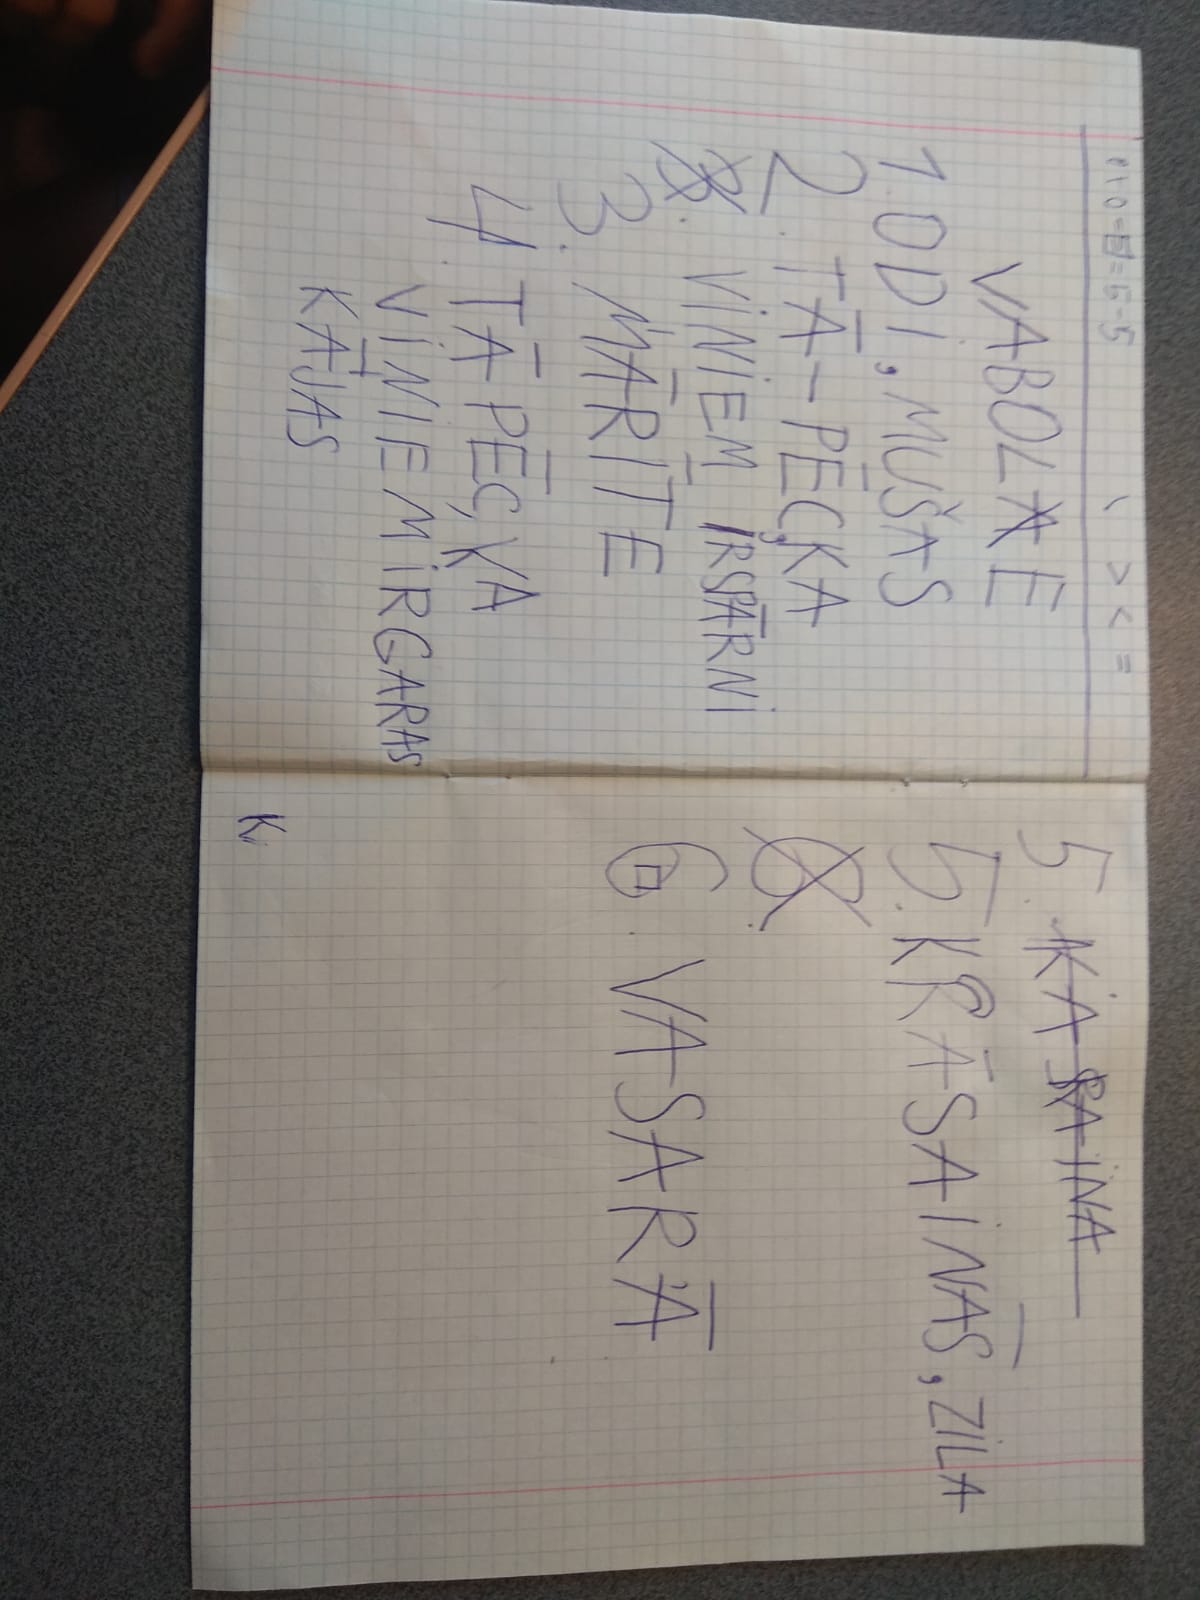 VABOLE
1. ODI, MUŠAS
2. TĀ-PĒC, KA
VIŅIEM IR SPĀRNI
3. MĀRĪTE
4. TĀ PĒC, KA
VIŅIEM IR GARAS
KĀJAS
5.
5. KRĀSAINĀS, ZILA
6. VASARĀ
K